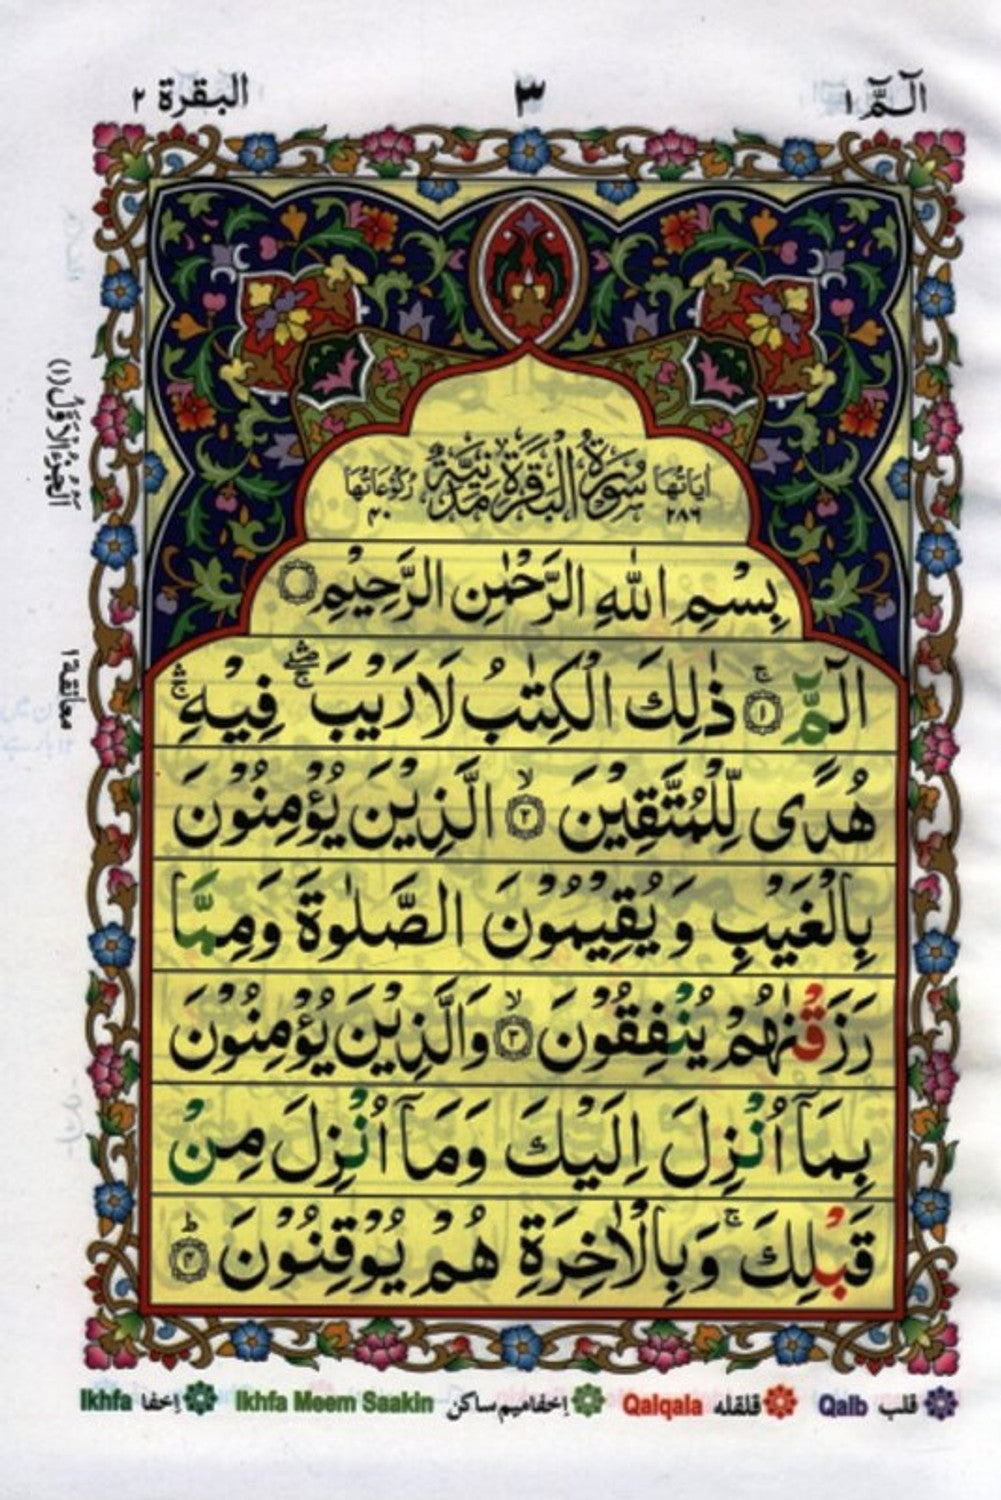 الٓمّٓ ١
٣
البقرة ٢
اَلْجُزْءُ الْاَوَّلُ (١)
معانقة ١
اٰيَاتُهَا ٢٨٦ سُوْرَةُ الْبَقَرَةِ مَدَنِيَّةٌ رُكُوْعَاتُهَا ٤٠
بِسْمِ اللّٰهِ الرَّحْمٰنِ الرَّحِيْمِ
الٓمّٓ ۚ ﴿١﴾ ذٰلِكَ الْكِتٰبُ لَا رَيْبَ ۛ فِيْهِ ۛ
هُدًى لِّلْمُتَّقِيْنَ ۙ ﴿٢﴾ الَّذِيْنَ يُؤْمِنُوْنَ
بِالْغَيْبِ وَيُقِيْمُوْنَ الصَّلٰوةَ وَمِمَّا
رَزَقْنٰهُمْ يُنْفِقُوْنَ ۙ ﴿٣﴾ وَالَّذِيْنَ يُؤْمِنُوْنَ
بِمَآ اُنْزِلَ اِلَيْكَ وَمَآ اُنْزِلَ مِنْ
قَبْلِكَ ۚ وَبِالْاٰخِرَةِ هُمْ يُوْقِنُوْنَ ؕ ﴿٤﴾
قلب Qalb قلقله Qalqala إخفا ميم ساكن Ikhfa Meem Saakin إخفا Ikhfa